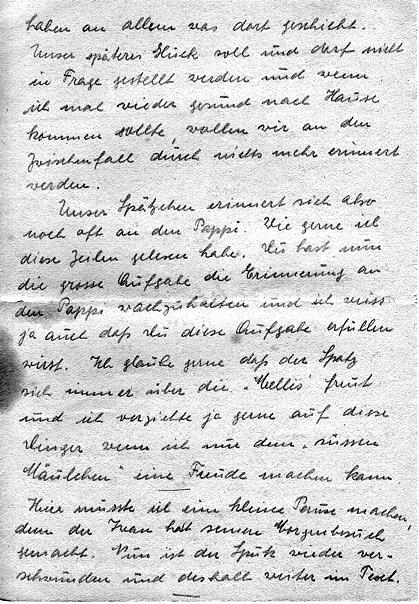 haben an allem was dort geschieht.
Unser späteres Glück soll und darf nicht
in Frage gestellt werden und wenn
ich mal wieder gesund nach Hause
kommen sollte wollen wir an den
Zwischenfall durch nichts mehr erinnert
werden.
Unser Spätzchen erinnert sich also
noch oft an den Pappi. Wie gerne ich
diese Zeilen gelesen habe. Du hast nun
die grosse Aufgabe die Erinnerung an
den Pappi wachzuhalten und ich weiss
ja auch daß Du diese Aufgabe erfüllen
wirst. Ich glaube gerne daß der Spatz
sich immer über die
freut
und ich verzichte ja gerne auf diese
Dinger wenn ich nur dem „süssen
Mäulchen" eine Freude machen kann
Hier musste ich eine kleine Pause machen,
denn der Iwan hat seinen Morgenbesuch
gemacht. Nun ist der Spuk wieder ver-
schwunden und deshalb weiter im Text.